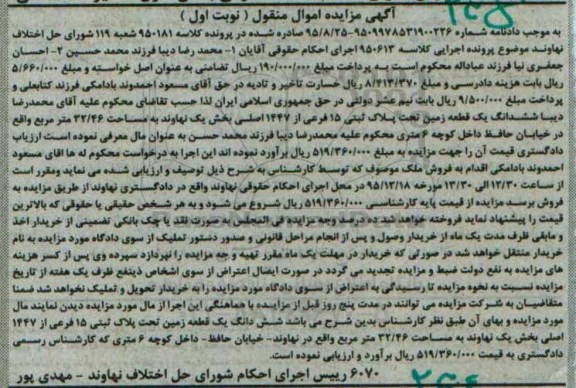 آگهی مزایده اموال منقول ( نوبت اول )
به موجب دادنامه شماره ۹۵۰۹۹۷۸۵۳۱۹۰۰۲۲۶-۹۵/۸/۲۵ صادره شده در پرونده کلاسه ۹۵۰۱۸۱ شعبه ۱۱۹ شورای حل اختلاف
نهاوند موضوع پرونده اجرایی کلاسه ۹۵۰۶۱۳ اجرای احکام حقوقی آقایان ۱- محمد رضا دیبا فرزند محمد حسین ۲- احسان
جعفری نیا فرزند عبداله محکوم است به پرداخت مبلغ ۱۹۰/۰۰۰/۰۰۰ ریال تضامنی به عنوان اصل خواسته و مبلغ ۵/۶۶۰/۰۰۰
ریال بابت هزینه دادرسی و مبلغ ۸/۴۱۳/۳۷۰ ریال خسارت تاخیر و تادیه در حق آقای مسعود احمدوند بادامکی فرزند کتابعلی و
پرداخت مبلغ ۹/۵۰۰/۰۰۰ ریال بابت نیم عشر دولتی در حق جمهوری اسلامی ایران لذا حسب تقاضای محکوم علیه آقای محمدرضا
دیبا ششدانگ یک قطعه زمین تحت پلاک ثبتی ۱۵ فرعی از ۱۴۴۷ اصلی بخش یک نهاوند به مساحت ۳۲/۴۶ متر مربع واقع
در خیابان حافظ داخل کوچه ۶ متری محکوم علیه محمدرضا دیبا فرزند محمد حسن به عنوان مال معرفی نموده است ارزیاب
دادگستری قیمت آن را جهت مزایده به مبلغ ۵۱۹/۳۶۰/۰۰۰ ریال برآورد نموده اند این اجرا به درخواست محکوم له ها اقای مسعود
احمدوند بادامکی اقدام به فروش ملک موصوف که توسط کارشناس به شرح ذیل توصیف و ارزیابی شده می نماید ومقرر است
از ساعت ۱۲/۳۰ الی ۱۳/۳۰ مورخه ۹۵/۱۲/۱۸ در محل اجرای احکام حقوقی نهاوند واقع در دادگستری نهاوند از طریق مزایده به
فروش برسد مزایده از قیمت پایه کارشناسی ۵۱۹/۳۶۰/۰۰۰ ریال شروع می شود و به هر شخص حقیقی یا حقوقی که بالاترین
قیمت را پیشنهاد نماید فروخته خواهد شد ده درصد وجه مزایده فی المجلس به صورت نقد یا چک بانکی تضمینی از خریدار اخذ
و مابقی ظرف مدت یک ماه از خریدار وصول و پس از انجام مراحل قانونی و صدور دستور تملیک از سوی دادگاه مورد مزایده به نام
خریدار منتقل خواهد شد در صورتی که خریدار در مهلت یک ماه مقرر تهیه و چه مزایده را نپردازد سپرده وی پس از کسر هزینه
های مزایده به نفع دولت ضبط و مزایده تجدید می گردد در صورت ایصال اعتراض از سوی اشخاص ذینفع ظرف یک هفته از تاریخ
مزایده نسبت به نحوه مزایده تا رسیدگی به اعتراض از سوی دادگاه مورد مزایده را به خریدار تحویل و تملیک نخواهد شد ضمنا
متقاضیان به شرکت مزایده می توانند در مدت پنج روز قبل از مزایده با هماهنگی این اجرا از مال مورد مزایده دیدن نمایند مال
مورد مزایده و بهای آن طبق نظر کارشناس بدین شرح می باشد شش دانگ یک قطعه زمین تحت پلاک ثبتی ۱۵ فرعی از ۱۴۴۷
اصلی بخش یک نهاوند به مساحت ۳۲/۴۶ متر مربع واقع در نهاوند- خیابان حافظ- داخل کوچه ۶ متری که کارشناس رسمی
دادگستری به قیمت ۵۱۹/۳۶۰/۰۰۰ ریال برآورد و ارزیابی نموده است.
۶۰۷۰ رییس اجرای احکام شورای حل اختلاف نهاوند - مهدی پور